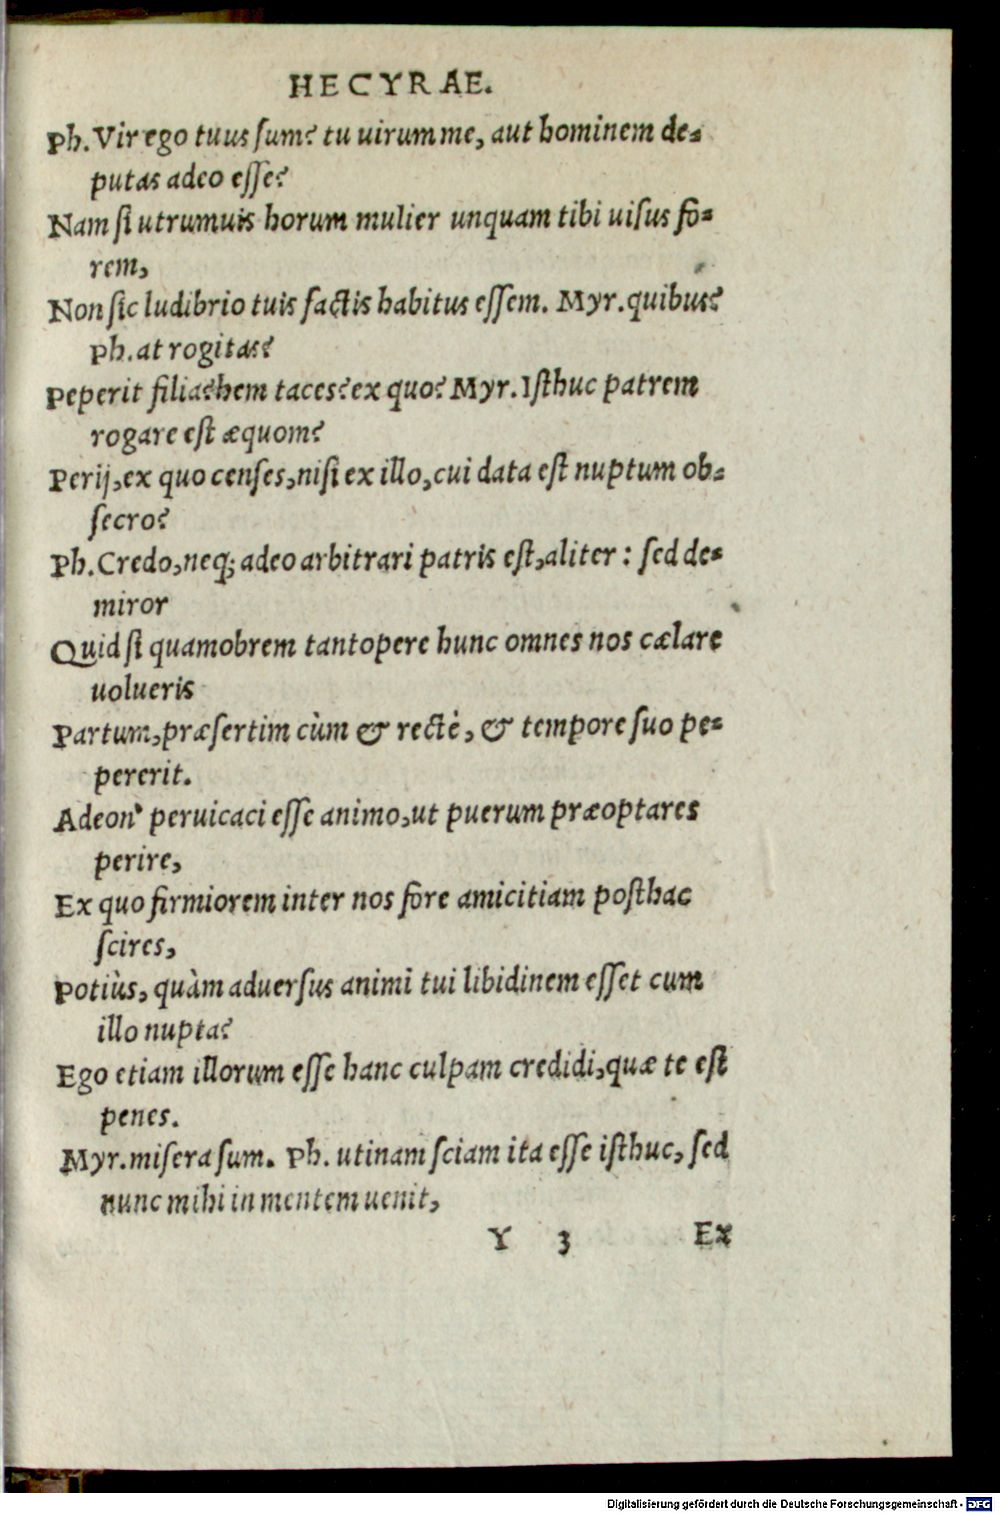 HECYRAE.
Ph. Vir ego tuus sum? tu uirum me, aut hominem de-
putas adeo esse?
Nam si utrumuis horum mulier unquam tibi uisus fo-
rem,
Non sic ludibrio tuis factis habitus essem. Myr. quibus?
Ph. at rogitas?
Peperit filia? hem taces? ex quo? Myr. Isthuc patrem
rogare est æquom?
Perij, ex quo censes, nisi ex illo, cui data est nuptum ob-
secro?
Ph. Credo, neq; adeo arbitrari patris est, aliter : sed de-
miror
Quid si quamobrem tantopere hunc omnes nos cælare
uolueris
Partum, præsertim cùm & rectè, & tempore suo pe-
pererit.
Adeon' peruicaci esse animo, ut puerum præoptares
perire,
Ex quo firmiorem inter nos fore amicitiam posthac
scires,
Potiùs, quàm aduersus animi tui libidinem esset cum
illo nupta?
Ego etiam illorum esse hanc culpam credidi, quæ te est
penes.
Myr. misera sum. Ph. utinam sciam ita esse isthuc, sed
nunc mihi in mentem uenit,
Y 3 Ex
Digitalisierung gefördert durch die Deutsche Forschungsgemeinschaft - DFG